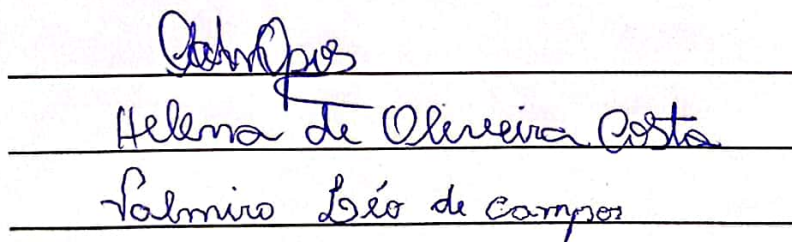 Helena de Oliveira Costa
Valmiro Léo de campos